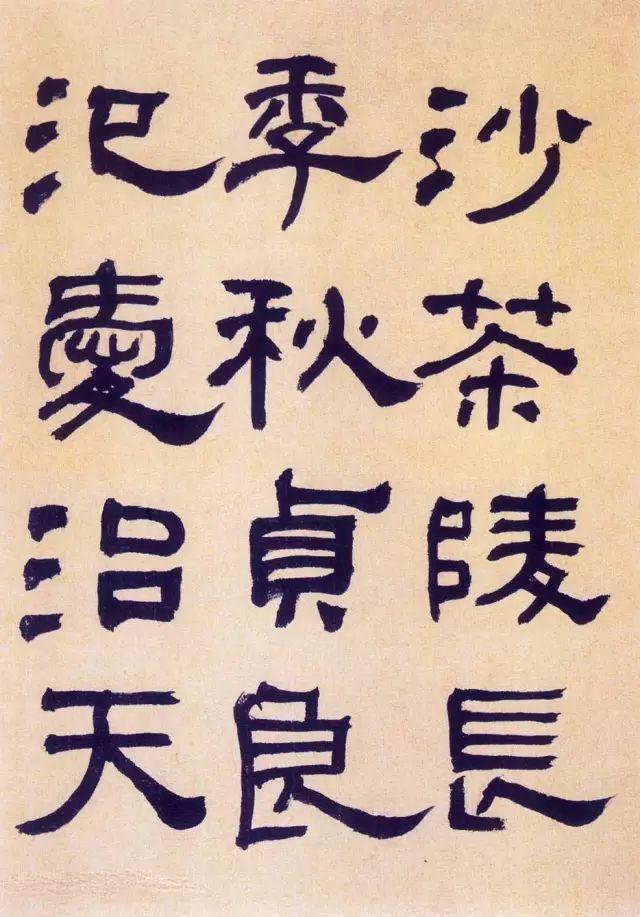 沙茶陵長
季秋貞良
汜愛治天